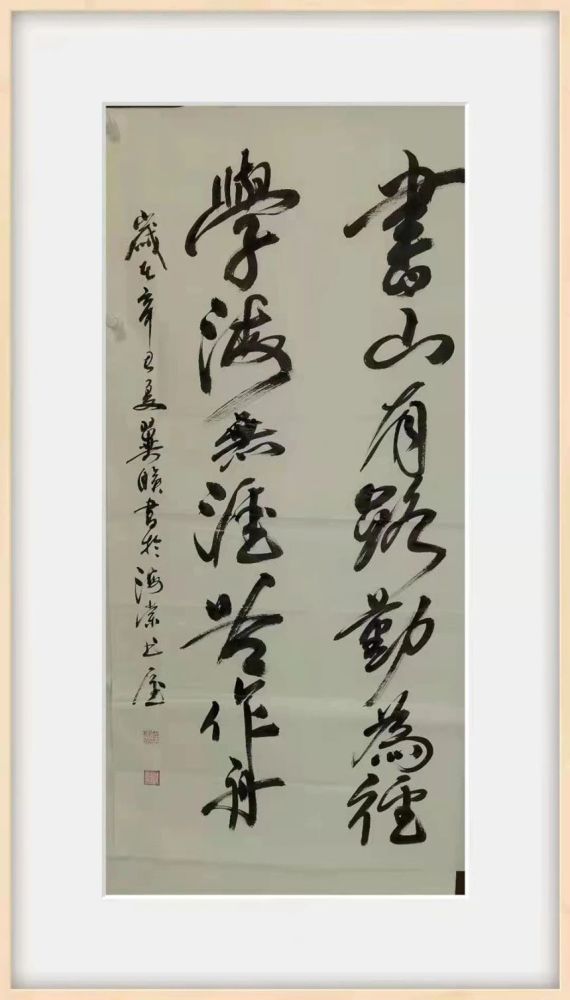 書山有路勤為徑
學海無涯苦作舟
歲在辛丑夏冀曉書於海棠書屋